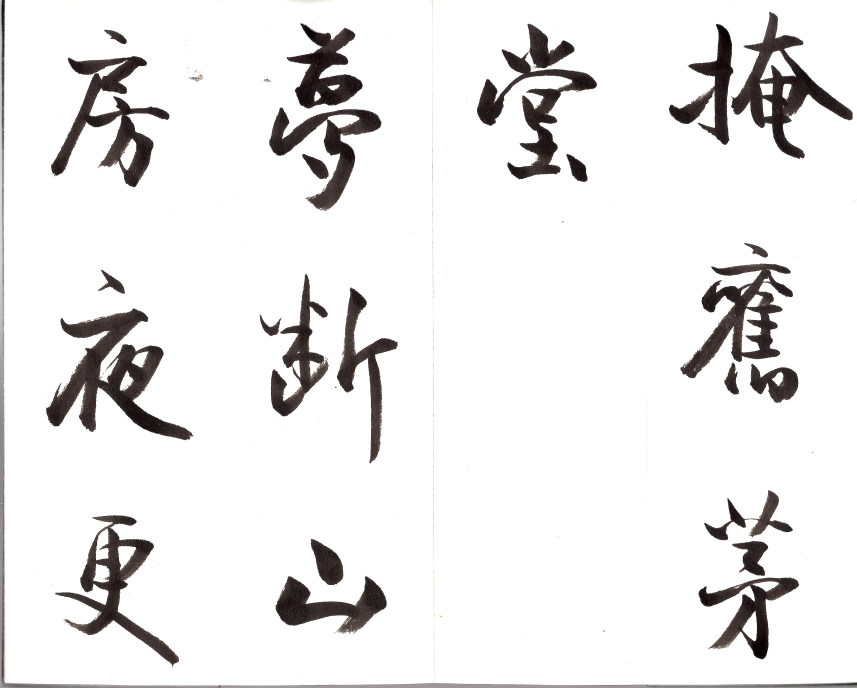 掩舊茅
堂
夢断山
房夜更